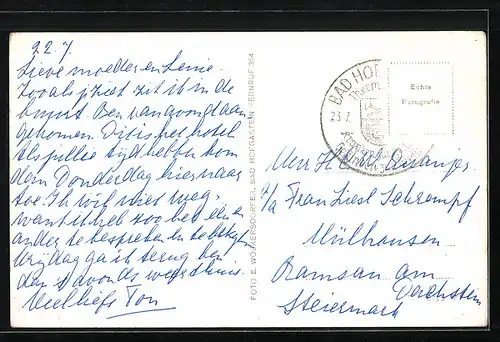 22.7
Lieve moeder en Lenie.
Zoals je ziet zit ik in de
buurt. Ben vanavond aan
gekomen. Dit is het hotel
Als jullie tijd hebben kom
dan Donderdag hier naar
toe. Ik wil niet weg,
want ik heb zoo het een en
ander te bespreken en te
Vrijdag ga ik terug ben
dan 's avonds weer thuis.
Veel liefs Ton
FOTO E. WOLKERSDORFER, BAD HOFGASTEIN, FERNRUF 364
BAD HOF
23.7.
Echte
Fotografie
p/a Frau Liesl Schrempf
Mülhausen
Ramsau am
Dachstein
Steiermark